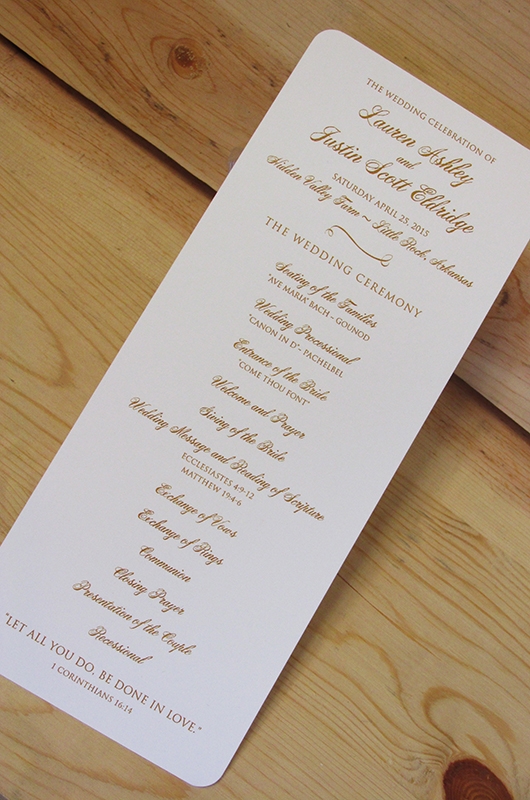 THE WEDDING CELEBRATION OF
Lauren Ashley
and
Justin Scott Eldridge
SATURDAY APRIL 25, 2015
Hidden Valley Farm ~ Little Rock, Arkansas
THE WEDDING CEREMONY
Seating of the Families
"AVE MARIA" BACH - GOUNOD
Wedding Processional
"CANON IN D"- PACHELBEL
Entrance of the Bride
"COME THOU FONT"
Welcome and Prayer
Giving of the Bride
Wedding Message and Reading of Scripture
ECCLESIASTES 4:9-12
MATTHEW 19:4-6
Exchange of Vows
Exchange of Rings
Communion
Closing Prayer
Presentation of the Couple
Recessional
"LET ALL YOU DO, BE DONE IN LOVE."
1 CORINTHIANS 16:14